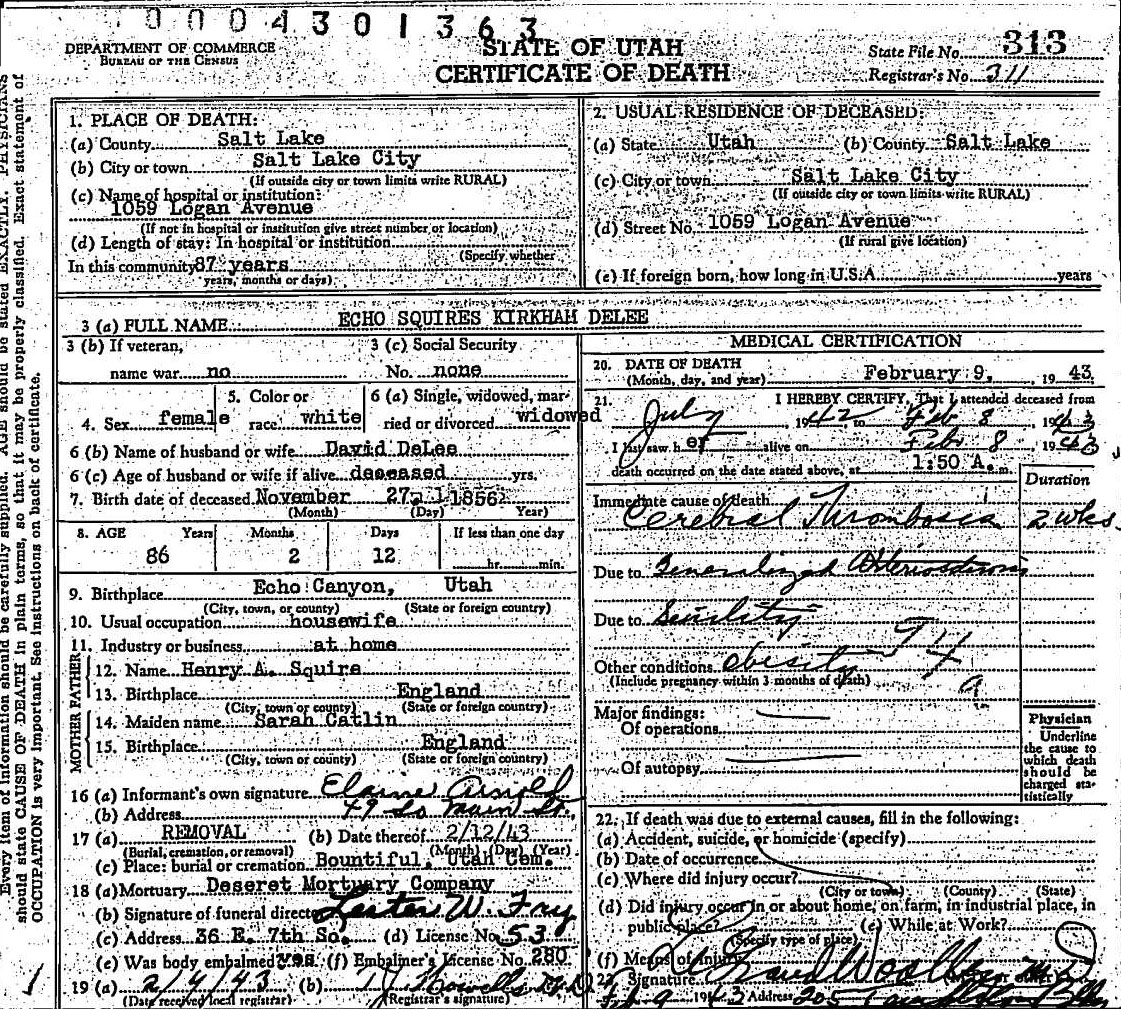 0004301363
DEPARTMENT OF COMMERCE
BUREAU OF THE CENSUS
STATE OF UTAH
CERTIFICATE OF DEATH
State File No. 313
Registrar's No. 311
Every item of information should be carefully supplied. AGE should be stated EXACTLY. PHYSICIANS
should state CAUSE OF DEATH in plain terms, so that it may be properly classified. Exact statement of
OCCUPATION is very important. See instructions on back of certificate.
1. PLACE OF DEATH:
(a) County Salt Lake
(b) City or town Salt Lake City
(If outside city or town limits write RURAL)
(c) Name of hospital or institution:
1059 Logan Avenue
(If not in hospital or institution give street number or location)
(d) Length of stay: In hospital or institution
(Specify whether
In this community 87 years
years, months or days)
2. USUAL RESIDENCE OF DECEASED:
(a) State Utah (b) County Salt Lake
(c) City or town Salt Lake City
(If outside city or town limits write RURAL)
(d) Street No. 1059 Logan Avenue
(If rural give location)
(e) If foreign born, how long in U.S.A. years
3 (a) FULL NAME ECHO SQUIRES KIRKHAM DELEE
3 (b) If veteran, 3 (c) Social Security
name war no No. none
4. Sex female 5. Color or race white 6 (a) Single, widowed, married or divorced widowed
6 (b) Name of husband or wife David DeLee
6 (c) Age of husband or wife if alive deseased yrs.
7. Birth date of deceased November 27, 1856
(Month) (Day) Year)
8. AGE Years Months Days If less than one day
86 2 12 hr. min.
9. Birthplace Echo Canyon, Utah
(City, town, or county) (State or foreign country)
10. Usual occupation housewife
11. Industry or business at home
FATHER
12. Name Henry A. Squire
13. Birthplace England
(City, town or county) (State or foreign country)
MOTHER
14. Maiden name Sarah Catlin
15. Birthplace England
(City, town, or county) (State or foreign country)
16 (a) Informant's own signature Elaine Arnold
(b) Address 49 So Main St.,
17 (a) REMOVAL (b) Date thereof 2/12/43
(Burial, cremation, or removal) (Month) (Day) (Year)
(c) Place: burial or cremation Bountiful, Utah Cem.
18 (a) Mortuary Deseret Mortuary Company
(b) Signature of funeral director Lester W. Fry
(c) Address 36 E. 7th So. (d) License No. 53
(e) Was body embalmed? yes (f) Embalmer's License No. 280
19 (a) 2/4/43 (b) T.J. Howells M.D.
(Date received local registrar) (Registrar's signature)
MEDICAL CERTIFICATION
20. DATE OF DEATH
(Month, day, and year) February 9, 1943
21. I HEREBY CERTIFY, That I attended deceased from
July 1942 to Feb 8 1943
I last saw her alive on Feb 8 1943
death occurred on the date stated above, at 1:50 A. m.
Duration
Immediate cause of death
Cerebral Thrombosis 2 wks.
Due to Generalized Arteriosclerosis
Due to Senility
94
Other conditions obesity
a
(Include pregnancy within 3 months of death)
Major findings:
Of operations
Of autopsy
Physician
Underline
the cause to
which death
should be
charged sta-
tistically
22. If death was due to external causes, fill in the following:
(a) Accident, suicide, or homicide (specify)
(b) Date of occurrence
(c) Where did injury occur?
(City or town) (County) (State)
(d) Did injury occur in or about home, on farm, in industrial place, in
public place? (e) While at Work?
(Specify type of place)
(f) Means of Injury
23. Signature
Feb 9 1943 Address 205